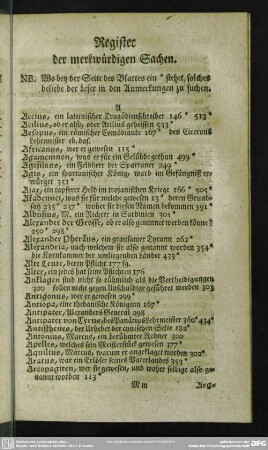 Register
der merkwürdigen Sachen.
NB. Wo bey der Seite des Blattes ein * stehet, solches
beliebe der Leser in den Anmerkungen zu suchen.
A
Accius, ein lateinischer Tragödienschreiber 146 * 513 *
Acilius, ob er also, oder Atilius geheissen 533 *
Aesopus, ein römischer Comödiante 167 * des Cicerons
Lehrmeister ib. das.
Africanus, wer er gewesen 115 *
Agamemnon, was er für ein Gelübde gethan 499 *
Agesilaus, ein Feldherr der Spartaner 249 *
Agis, ein spartanischer König, ward im Gefängniß er-
würget 351 *
Ajax, ein tapferer Held im trojanischen Kriege 166 * 505 *
Akademici, was für welche gewesen 13 * deren Grund-
satz 235 * 237 * woher sie diesen Namen bekommen 391 *
Albutius, M. ein Richter in Sardinien 301 *
Alexander der Grosse, ob er also genennet werden könne?
250 * 298 *
Alexander Pheräus, ein grausamer Tyrann 262 *
Alexandria, nach welchem sie also genannt worden 354 *
die Kornkammer der umliegenden Länder 433 *
Alte Leute, deren Pflicht 177 fg.
Alter, ein jedes hat seine Pflichten 176
Anklagen sind nicht so rühmlich als die Vertheidigungen
300 * sollen nicht gegen Unschuldige geführet werden 303
Antigonus, wer er gewesen 299 *
Antiopa, eine thebanische Königinn 167 *
Antipater, Alexanders General 298
Antipater von Tyrus, des Panätius Lehrmeister 360 * 434 *
Antisthenes, der Urheber der cynischen Secte 182 *
Antonius, Marcus, ein berühmter Redner 300
Apelles, welches sein Meisterstück gewesen 377 *
Aquilius, Marcus, warum er angeklaget worden 302 *
Aratus, war ein Erlöser seines Vaterlandes 353 *
Areopagiten, wer sie gewesen, und woher selbige also ge-
nannt worden 113 *
Mm
Arg-